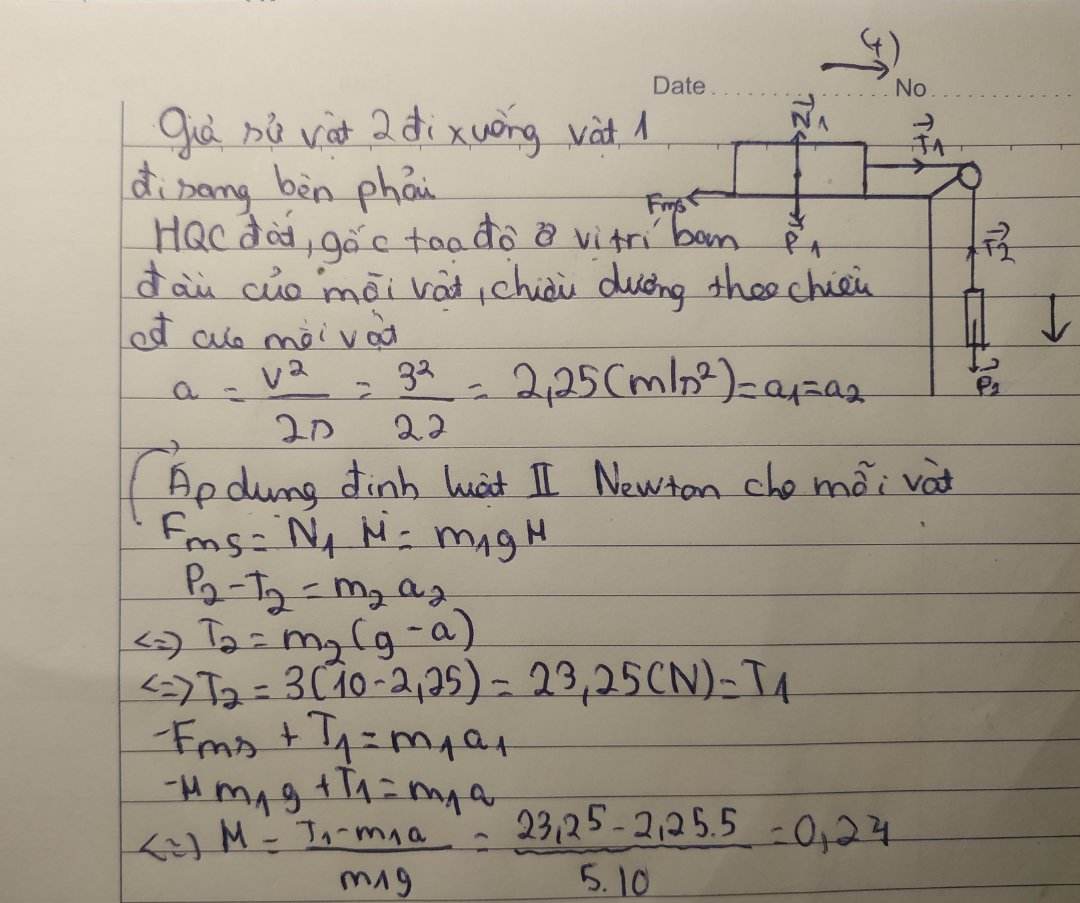 (+)
Date No
Giả sử vật 2 đi xuống vật 1
N₁
T₁
đi sang bên phải
Fms
P₁
T₂
P₂
HQC đất, gốc toạ độ ở vị trí ban
đầu của mỗi vật, chiều dương theo chiều
cđ của mỗi vật
a = v²/2s = 3²/2.2 = 2,25(m/s²) = a₁ = a₂
Áp dụng định luật II Newton cho mỗi vật
Fms = N₁ μ = m₁gμ
P₂ - T₂ = m₂a₂
<=> T₂ = m₂(g - a)
<=> T₂ = 3(10 - 2,25) = 23,25(N) = T₁
-Fms + T₁ = m₁a₁
-μm₁g + T₁ = m₁a
<=> μ = (T₁ - m₁a)/(m₁g) = (23,25 - 2,25.5)/(5.10) = 0,24